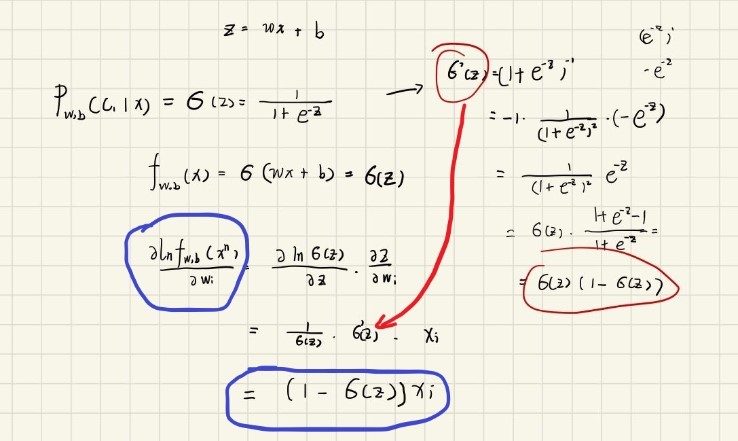 z = wx + b
P_{w,b}(C_1|x) = σ(z) = \frac{1}{1+e^{-z}}
f_{w,b}(x) = σ(wx+b) = σ(z)
\frac{∂ln f_{w,b}(x^n)}{∂w_i} = \frac{∂ ln σ(z)}{∂z} · \frac{∂z}{∂w_i}
= \frac{1}{σ(z)} · σ'(z) · x_i
= (1 - σ(z)) x_i
(e^{-z})'
-e^{-z}
→ σ'(z) = (1+e^{-z})^{-1}
= -1 · \frac{1}{(1+e^{-z})^2} · (-e^{-z})
= \frac{1}{(1+e^{-z})^2} e^{-z}
= σ(z) · \frac{1+e^{-z}-1}{1+e^{-z}} =
= σ(z) (1 - σ(z))